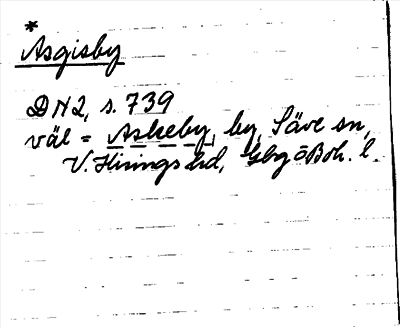 *
Asgisby
DN2, s. 739
väl = Askeby, by, Säve sn,
V. Hisings hd, Gbg o Boh. l.